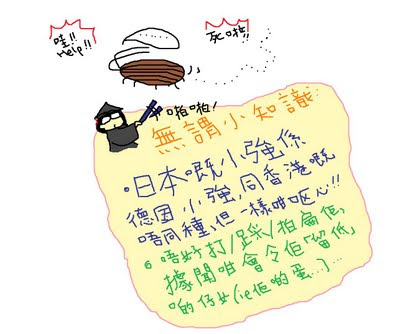 哇!!
Help!!
死啦!!
啪啪!
無謂小知識
•日本嘅小強係
德国小強,同香港嘅
唔同種,但一樣咁呕心!!
•唔好打/踩/拍扁佢,
據聞咁會令佢「留低」
啲仔女(ie佢啲蛋...)...